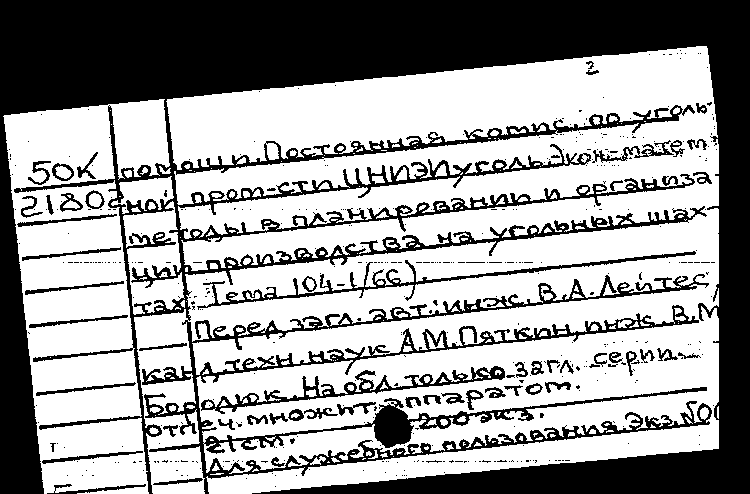 2
50К помощи. Постоянная комис. по уголь-
21802 ной пром-сти. ЦНИЭИуголь. Экон.-матем.
методы в планировании и организа-
ции производства на угольных шах-
тах. Тема 104-1/66).
Перед загл. авт.: инж. В.А. Лейтес,
канд. техн. наук А.М. Пяткин, инж. В.М.
Бородюк. На обл. только загл. серии.
Отпеч. множит. аппаратом.
21 см. 200 экз.
Для служебного пользования. Экз. №00